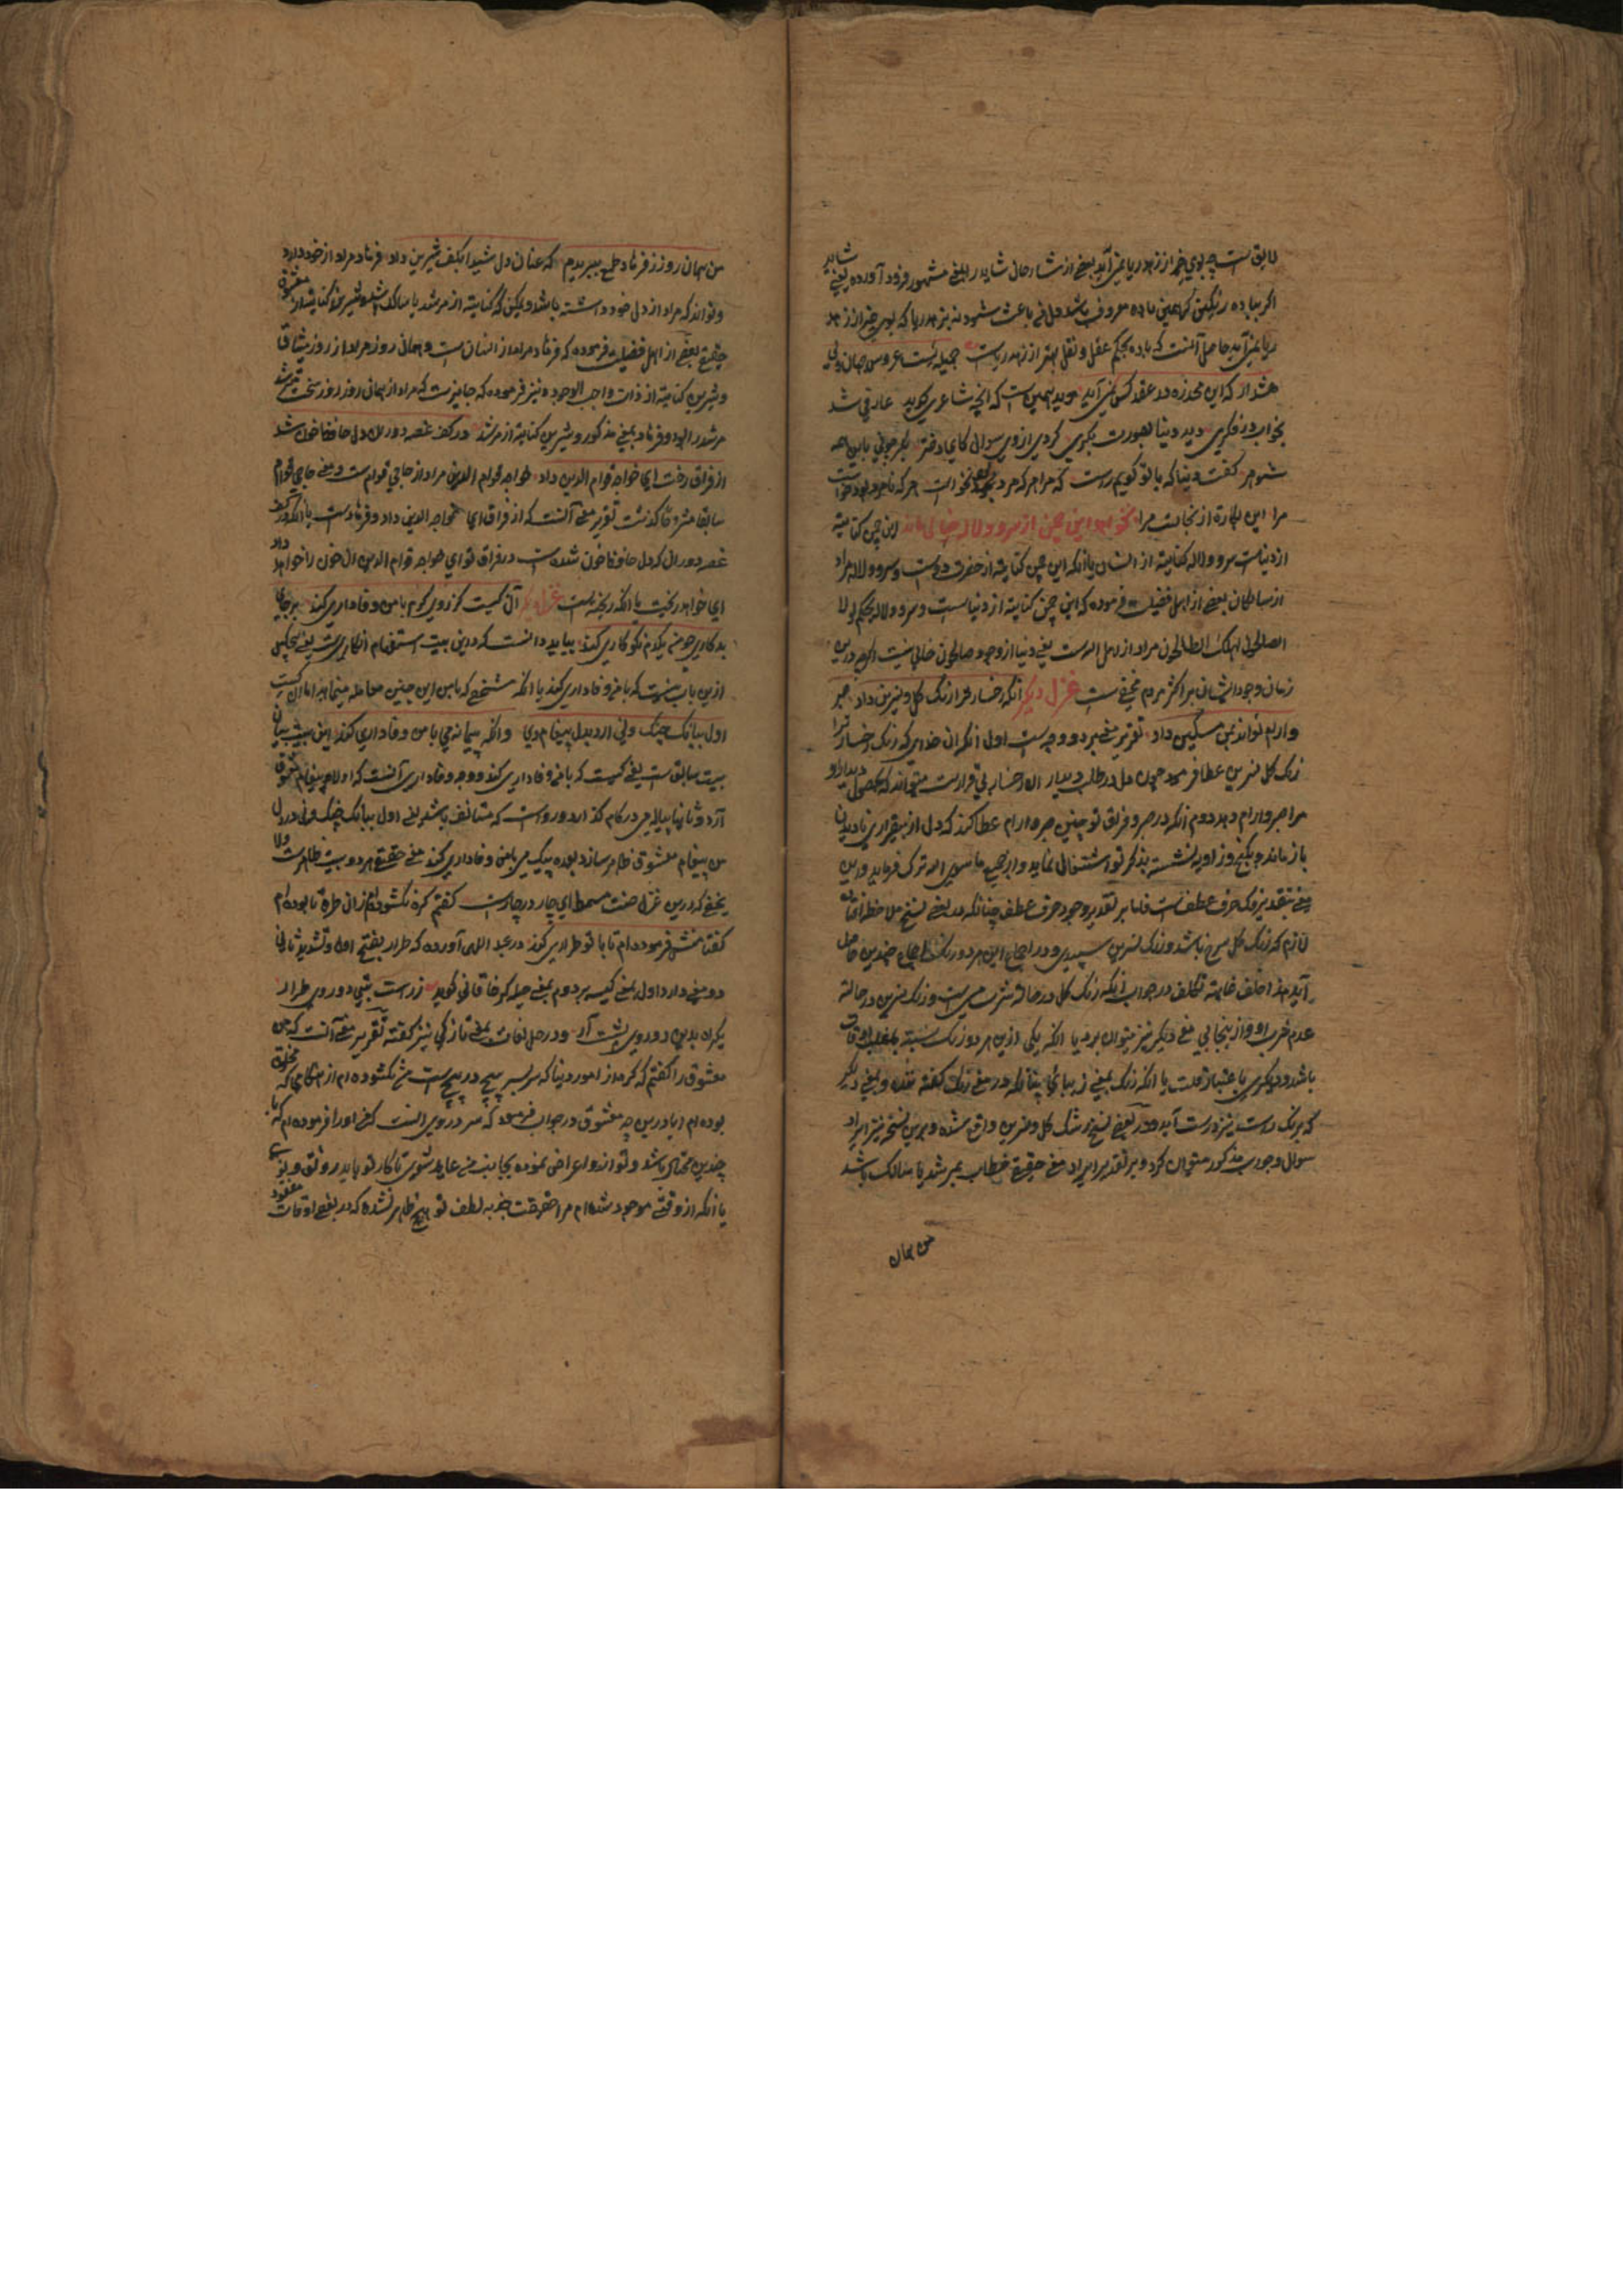 لایق است چه بوی خیر از زهد ریا نمی آید بعضی از شارحان شاید را بمعنی مشهور فرود آورده یعنی شاید
اگر بباده رنگین که همین باده معروف باشد دل باعث شود نه بزهد ریا که بوی خیر از زهد
ریا نمی آید حاصل آنست که باده بحکم عقل و نقل بهتر از زهد ریاست جمیله ایست عروس جهان ولی
هشدار که این مخدره در عقد کس نمی آید موید همین است که آنچه شاعری گوید عارفی شد
بخواب در فکری دید دنیا بصورت بکری کرد از وی سوال کای دختر بکر چونی باین همه
شوهر گفت دنیا که با تو گویم راست که مرا هر که مرد بود نخواست هر که نامرد بود خواست
مرا این بکارت از آنجاست مرا نخواهد این چمن از سرو و لاله خالی ماند این چمن کنایة
از دنیاست سرو و لاله کنایة از انسان یا آنکه این چمن کنایة از حضرت دوست و سرو و لاله مراد
از سالکان بعضی از اهل فضیلت فرموده که این چمن کنایة از دنیا است و سرو و لاله بحکم لولا
الصالحون لهلک الطالحون مراد از اهل الله است یعنی دنیا از وجود صالحون خالی نیست اگرچه درین
زمان وجود ایشان بر اکثر مردم مخفی است غزل دیگر آنکه رخسار ترا رنگ گل و نسرین داد صبر
و آرام تواند بمن مسکین داد تقریر معنی بر دو وجه است اول آنکه آن خدای که رنگ رخسار ترا
رنگ گل نسرین عطا فرمود چون دل در طلب دیدار آن رخسار بی قرار است میتواند که بحصول دیدار او
مرا صبر و آرام دهد دوم آنکه در هجر و فراق تو چنین صبر و آرام عطا کند که دل از بیقراری نادیدن
باز ماند و بکنج و زاویه نشسته بذکر تو اشتغالی نماید و از جمیع ما سوی الله ترک فرماید و این
معنی بتقدیر فک حرف عطف است فاما بر تقدیر وجود حرف عطف چنانکه در بعضی نسخ ملاحظه
لازم که رنگ گل سرخ باشد و رنگ نسرین سپیدی و در اجتماع این هر دو رنگ
آید هذا خلف غایة تکلف در جواب آنکه رنگ گل در حالة شرب می است و رنگ نسرین در حالة
عدم شرب او و از اینجا بی معنی دیگر نیز میتوان برد یا آنکه یکی ازین هر دو رنگ نسبة باغلب اوقات
باشد و دیگری باعتبار قلت یا آنکه رنگ بمعنی زیبائی چنانکه در معنی رنگ گفته شده و یعنی دیگر
که برنگ درست نیز درست آید و در بعضی نسخ رشک گل و نسرین واقع شده و برین نسخه نیز ایراد
سوال و جواب مذکور میتوان کرد و بر تقدیر ایراد معنی حقیقة خطاب بمرشد یا سالک باشد
من همان
من همان روز ز فرهاد طمع ببریدم که عنان دل شیدا بکف شیرین داد فرهاد مراد از خود دارد
و تواند که مراد از دل خود داشته باشد و لیکن که کنایة از مرشد یا سالک باشد و شیرین کنایة از معشوق
حقیقی بعضی از اهل فضیلت فرموده که فرهاد مراد از انسان است و همان روز مراد از روز میثاق
و شیرین کنایة از ذات واجب الوجود و نیز فرموده که جایز است که مراد از همان روز روز
مرشد بود و فرهاد بمعنی مذکور و شیرین کنایة از مرشد در کف غصه دوران دل حافظ خون شد
از فراق رخت ای خواجه قوام الدین داد خواجه قوام الدین مراد از حاجی قوام است و معنی حاجی قوام
سابقا مشروحا گذشت تقریر معنی آنست که از فراق ای خواجه الدین داد و فریاد است یا آنکه در کف
غصه دوران که دل حافظ خون شده است در فراق تو ای خواجه قوام الدین آن خون را خواهد داد
ای خواهد ریخت یا آنکه ریخته است غزل دیگر آن کیست کز روی کرم با من وفاداری کند بر جای
بدکاری چو من یکدم نکو کاری کند بباید دانست که درین بیت استفهام انکاری است یعنی هیچکس
ازین باب نیست که با من وفاداری کند یا آنکه شخصی که با من این چنین معامله مینماید آیا آن کیست
اول ببانگ چنگ و نی آرد بدل پیغام وی وانگه بیک پیمانه می با من وفاداری کند این بیت بیان
بیت سابق است یعنی کیست که با من وفاداری کند و وجه وفاداری آنست که اولا پیغام معشوق
آرد و ثانیا پیاله می در کام کند
من پیغام معشوق ظاهر سازد بعده بیک می با من وفاداری کند معنی حقیقة هر دو بیت ظاهر است ولا
یخفی که درین غزل صنعت مسمط ای چار در چار است گفتم گره نگشوده ام زان طره تا بوده ام
گفتا منش فرموده ام تا با تو طراری کند در عبد اللهی آورده که طرار بفتح اول و تشدید ثانی
دو معنی دارد اول بمعنی کیسه بر دوم بمعنی حیله گر خاقانی گوید
یکران بدین دو روی پشت آر و در حل لغات بمعنی تازگی نیز گفته تقریر معنی آنست که من
معشوق را گفتم که گره از امور دنیا که سر بسر پیچ در پیچ است من نگشوده ام از هنگامی که مخلوق
بوده ام آیا درین چه معشوق در جواب فرمود که سر در وی آنست که من او را فرموده ام که با
چندین محتاج باشد و تو ازو اعراض نموده بجانب من عاید شوی تا کار تو باید رونق
یا آنکه از وقتی موجود شده ام مرا حقیقت جذبه لطف تو هیچ ظاهر نشده که در بعضی اوقات